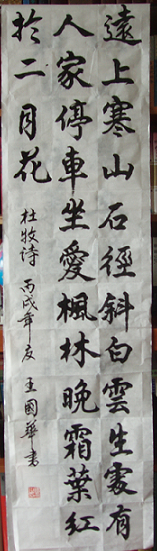 遠上寒山石徑斜白雲生處有
人家停車坐愛楓林晚霜葉紅
於二月花
杜牧诗 丙戌年 王國華書